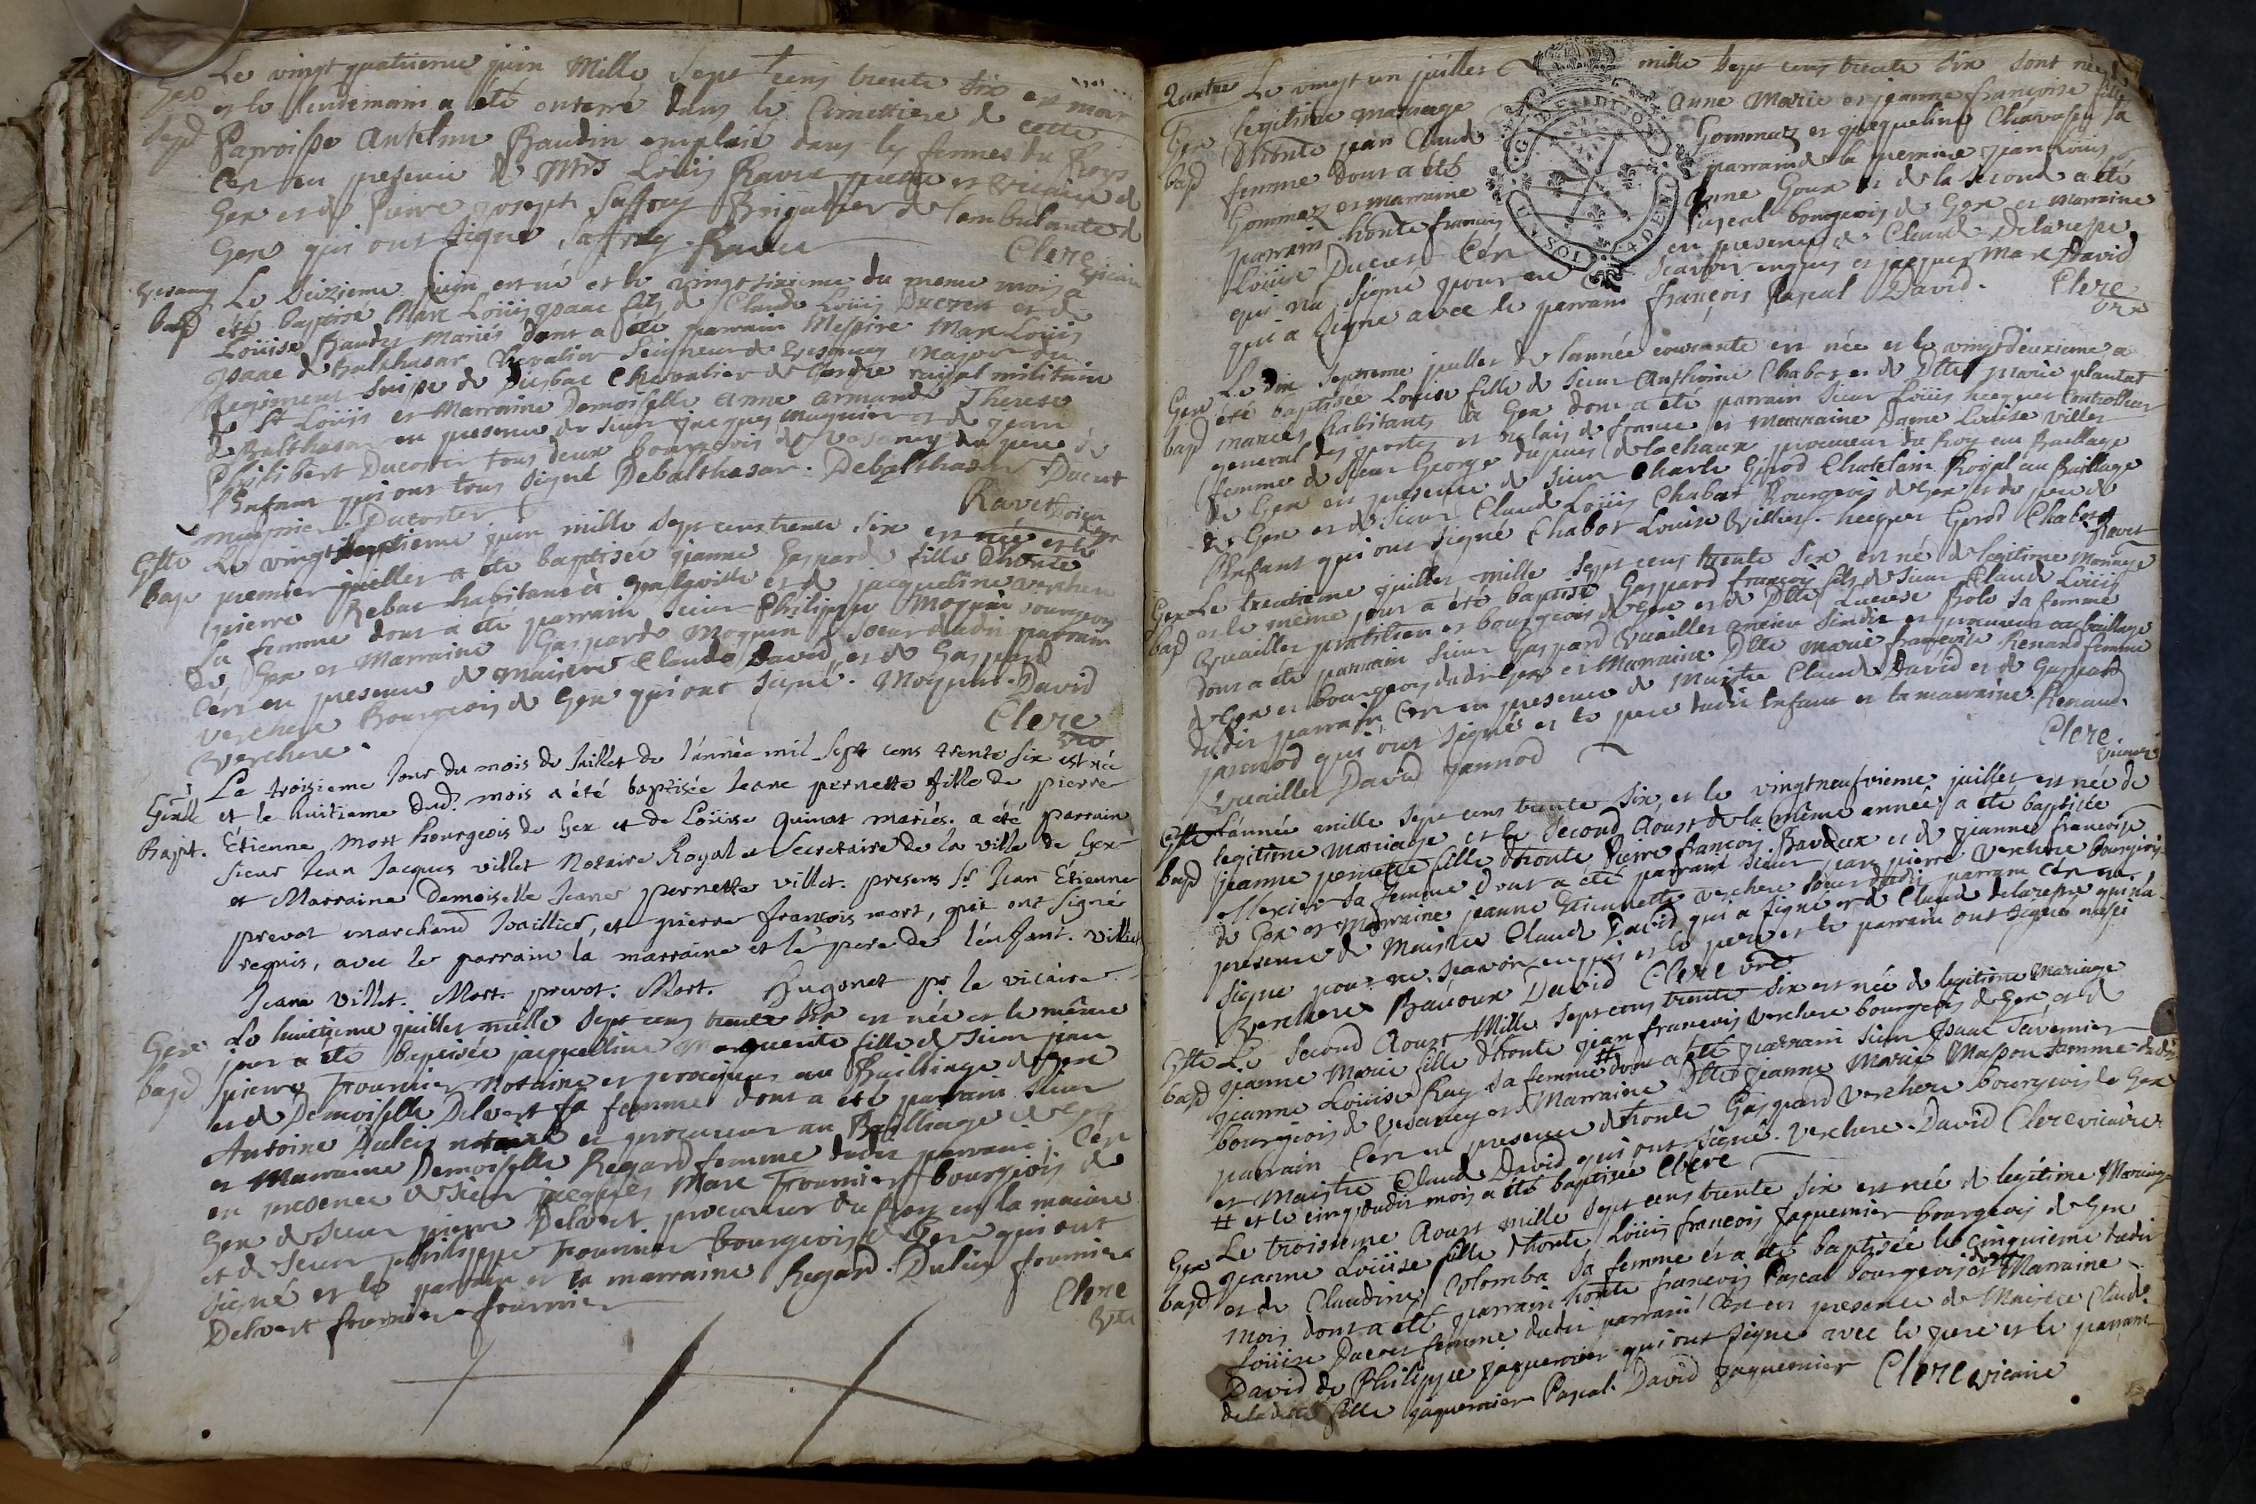 Gex Le vingt quatrieme juin Mille Sept cens trente six est mort
sepd et le lendemain a été enterré dans le Cimettiere de cette
Parroisse Antelme Baudin emploié dans les fermes du Roys
C'en en presence de Mrs Louis Ravet pretre et vicaire de
Gex et de Pierre joseph Saffray Brigadier de l'ambulante de
Gex qui ont signé Saffray. Ravet
Clere vicaire
Vesancy Le seizieme juin est né et le vingt sixieme du meme mois a
bapd été baptisé Marc Louis jsaac fils de Claude Louis Ducret et de
Louise Baudet Mariés dont a été parrain Messire Marc Louis
jsaac de Balthasar Chevalier Seigneur de Vesancy Major du
Regiment Suisse de Diesbac Chevalier de l'ordre roiyal militaire
de St Louis et Marraine Demoiselle Anne armande Therese
de Balthasar en presence de sieur jacques mugnier et de jean
Philibert Ducoster tous deux bourgeois de Vesancy du pere de
l'Enfant qui ont tous signé Debalthasar. Debalthasar. Ducret
mugnier. Ducoster
Ravet
Le vingt septieme juin mille sept cens trente six est née et le
bapd premier juillet a été baptisée jeanne Gasparde fille d'honte
pierre Rebat habitant et de jacqueline
sa femme dont a été parrain sieur Philippe Moquin bourgeois
de Gex et Marraine Gasparde Moquin soeur dudit parrain
C'en en presence de maistre Claude David et de Gaspard
verchere Bourgeois de Gex qui ont signé. Moquin. David
Verchere.
Clere
vic
Le troisieme Jour du mois de Juillet de l'année mil sept cens trente six est née
et le huitieme dud. mois a été baptisée Jeane pernette fille de pierre
Bapt. Étienne Mort bourgeois de Gex et de Loüise quinat mariés. a été parrain
Sieur Jean Jacques villet Notaire Royal et Secretaire de la ville de Gex
et Marraine Demoiselle Jeane pernette villet. presens Sr Jean Étienne
prevot marchand Joaillier, et pierre françois mort, qui ont signé
requis, avec le parrain la marraine et le pere de l'enfant. villet
Jeane villet. Mort. prevot. Mort. Hugonet pr. le vicaire
Gex Le huitieme juillet mille sept cens trente six est née et le même
bapd jour a été baptisée jacqueline Marguerite fille de sieur jean
pierre Fournier notaire et procureur au Bailliage de Gex
et de Demoiselle Delvert sa femme dont a été parrain sieur
Antoine Dulin notaire et procureur au Bailliage de Gex
et Marraine Demoiselle Regard femme dudit parrain. C'en
en presence de sieur jacques Marc Fournier bourgeois de
Gex de sieur pierre Delvert procureur du Roy en la mairie
et de sieur philippe Fournier bourgeois de Gex qui ont
signé et le parrain et la marraine Regard. Dulin fournier
Delvert fournier fournier
Clere
vic
Quatre Le vingt un juillet mille sept cens trente six sont nées de
Gex legitime mariage Anne Marie et jeanne françoise filles
bapd d'honte jean Claude Gommaz et jacqueline Chavassu sa
femme dont a été parrain de la premiere jean Louis
Gommaz et marraine Anne Goux et de la seconde a été
parrain honte françois Pascal bourgeois de Gex et marraine
Louise Ducret C'en en presence de Claude Delarespe
qui n'a signé pour ne sçavoir enquis et jacques Marc David
qui a signé avec le parrain françois Pascal David.
Clere
vic
Gex Le dix septieme juillet de l'année courante est née et le vingt deuxieme a
bapd été baptisée Louise fille de sieur Anthoine Chabot et de Dlle Marie plantat
mariés habitants à Gex dont a été parrain sieur Louis hecquet Controlleur
general des postes et relais de france et Marraine Dame Louise Villet
femme de sieur George dupuis de lachaux procureur du Roy au Bailliage
de Gex en presence de sieur Charle Girod Chatelain Roiyal au Bailliage
de Gex et de sieur Claude Louis Chabot Bourgeois de Gex et du pere de
l'Enfant qui ont signé Chabot Louise Villier. hecquet Girod Chabot
Ravet
Gex Le trentieme juillet mille sept cens trente six est né de legitime Mariage
bapd et le même jour a été baptisé Gaspard françois fils de sieur Claude Louis
Vuaillet praticien et bourgeois de Gex et de Dlle Lucresse Bolo sa femme
dont a été parrain sieur Gaspard Vuaillet ancien Sindic et procureur au bailliage
de Gex et bourgeois dudit Gex et Marraine Dlle marie françoise Renaud femme
dudit parrain C'en en presence de Maistre Claude David et de Gaspard
jannod qui ont signés et le pere dudit Enfant et la marraine Renaud.
Vuaillet David jannod
Clere
vicaire
L'année mille sept cens trente six, et le vingt neufvieme juillet est née de
bapd legitime mariage et le second Aoust de la même année a été baptisée
jeanne pernette fille d'honte Pierre françois Bavoux et de jeanne françoise
Mercier sa femme dont a été parrain sieur jean pierre Verchere bourgeois
de Gex et Marraine jeanne Etiennette Verchere soeur dudit parrain C'en en
presence de Maistre Claude David qui a signé et de Claude delarespe qui n'a
signé pour ne sçavoir enquis et le pere et le parrain ont signés aussi
Verchere Bavoux David Clere vic
Le second Aoust Mille sept cens trente six est née de legitime Mariage
bapd jeanne Marie fille d'honte jean françois Verchere bourgeois de Gex et de
jeanne Louise Ray sa femme # dont a été parrain sieur jsaac Tavernier
bourgeois de Vesancy et Marraine Dlle jeanne Marie Masson femme dudit
parrain C'en en presence d'honte Gaspard Verchere bourgeois de Gex
et Maistre Claude David qui ont signé. Verchere. David Clere vicaire
# et le cinq dudit mois a été baptisée Clere
Gex Le troisieme Aoust mille sept cens trente six est née de legitime Mariage
bapd jeanne Louise fille d'honte Louis françois jaquemier bourgeois de Gex
et de Claudine Colomba sa femme et a été baptisée le cinquieme dudit
mois dont a été parrain honte françois Pascal bourgeois et Marraine
Louise Ducret femme dudit parrain C'en en presence de Maistre Claude
David de Philippe jaquemier qui ont signé avec le pere et le parrain
de ladite fille jaquemier Pascal. David jaquemier Clere vicaire